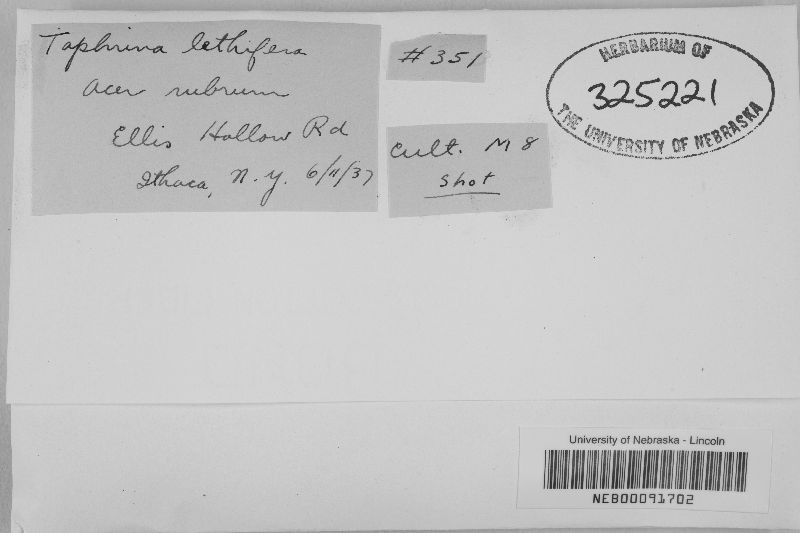 Taphrina lethifera
Acer rubrum
Ellis Hollow Rd
Ithaca, N.Y. 6/11/37
#351
Cult. M 8
shot
HERBARIUM OF
325221
THE UNIVERSITY OF NEBRASKA
University of Nebraska - Lincoln
NEB00091702